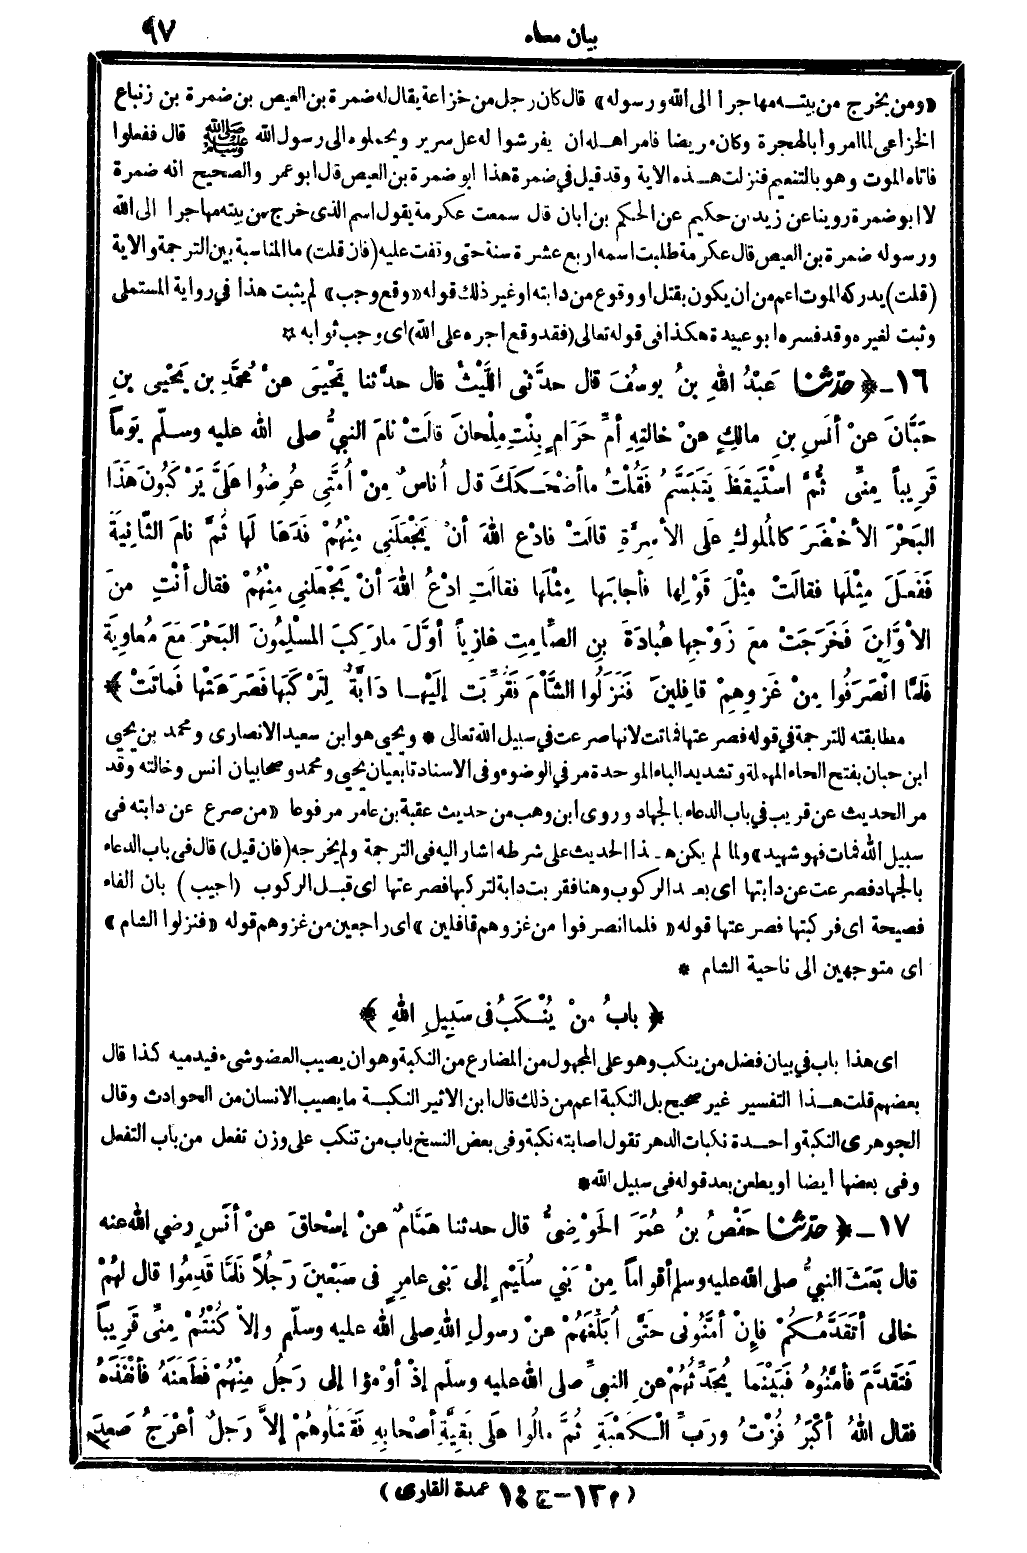 بيان معناه ٩٧
«ومن يخرج من بيته مهاجرا الى الله ورسوله» قال كان رجل من خزاعة يقال له ضمرة بن العيص بن ضمرة بن زنباع
الخزاعى لما امروا بالهجرة وكان مريضا فامر اهله ان يفرشوا له على سرير ويحملوه الى رسول الله ﷺ قال ففعلوا
فاتاه الموت وهو بالتنعيم فنزلت هذه الاية وقد قيل في ضمرة هذا ابو ضمرة بن العيص قال ابو عمر والصحيح انه ضمرة
لا ابو ضمرة روينا عن زيد بن حكيم عن الحكم بن ابان قال سمعت عكرمة يقول اسم الذى خرج من بيته مهاجرا الى الله
ورسوله ضمرة بن العيص قال عكرمة طلبت اسمه اربع عشرة سنة حتى وقفت عليه (فان قلت) ما المناسبة بين الترجمة والاية
(قلت) يدركه الموت اعم من ان يكون بقتل او وقوع من دابته او غير ذلك قوله «وقع وجب» لم يثبت هذا في رواية المستملى
وثبت لغيره وقد فسره ابو عبيدة هكذا فى قوله تعالى (فقد وقع اجره على الله) اى وجب ثوابه ☆
١٦ ـ ﴿ حدّثنا عَبْدُ اللهِ بنُ يوسُفَ قال حدّثنى اللَّيْثُ قال حدَّثنا يَحْيىَ عنْ مُحمَّدِ بن يَحْيى بنِ
حبَّانَ عنْ أنَسِ بنِ مالكٍ عنْ خالتِهِ أمِّ حَرَامٍ بِنْتِ مِلْحانَ قالَتْ نامَ النبيُّ صلى الله عليه وسلّم يَوْماً
قَرِيباً مِنِّى ثُمَّ اسْتَيقظَ يَتَبَسَّمُ فَقُلْتُ ما أضْحَكَكَ قال أُناسٌ مِنْ أُمَّتِى عُرِضُوا علَيَّ يَرْكَبُونَ هَذَا
البَحْرَ الأخْضَرَ كالمُلوكِ علَى الأسِرَّةِ قالَتْ فادْعُ اللهَ أنْ يَجْعَلَنِي مِنْهُمْ فَدَعا لَها ثُمَّ نامَ الثَّانِيَةَ
فَفَعَلَ مِثْلَها فقالَتْ مِثْلَ قَوْلِها فأجابَها مِثْلَها فقالَتِ ادْعُ اللهَ أنْ يَجْعَلَنِي مِنْهُمْ فقال أنْتِ منَ
الأوَّلِينَ فَخَرَجَتْ معَ زَوْجِها عُبادَةَ بنِ الصَّامِتِ غازِياً أوَّلَ ما رَكِبَ المُسْلِمُونَ البَحْرَ مَعَ مُعاوِيَةَ
فلَمَّا انْصَرَفُوا مِنْ غَزوِهِمْ قافِلينَ فَنَزَلُوا الشَّأْمَ فَقُرِّبَت إلَيْها دَابَّةٌ لِتَرْكَبَها فَصَرَعَتْها فَماتَتْ ﴾
مطابقته للترجمة في قوله فصرعتها فماتت لانها صرعت في سبيل الله تعالى * ويحيى هو ابن سعيد الانصارى ومحمد بن يحيى
ابن حبان بفتح الحاء المهملة وتشديد الباء الموحدة مر في الوضوء وفى الاسناد تابعيان يحيى ومحمد وصحابيان انس وخالته وقد
مر الحديث عن قريب في باب الدعاء بالجهاد وروى ابن وهب من حديث عقبة بن عامر مرفوعا «من صرع عن دابته فى
سبيل الله فمات فهو شهيد» ولما لم يكن هذا الحديث على شرطه اشار اليه فى الترجمة ولم يخرجه (فان قيل) قال فى باب الدعاء
بالجهاد فصرعت عن دابتها اى بعد الركوب وهنا فقربت دابة لتركبها فصرعتها اى قبل الركوب (اجيب) بان الفاء
فصيحة اى فركبتها فصرعتها قوله «فلما انصرفوا من غزوهم قافلين» اى راجعين من غزوهم قوله «فنزلوا الشام»
اى متوجهين الى ناحية الشام *
﴿ بابُ منْ يُنْكَبُ فى سَبِيلِ اللهِ ﴾
اى هذا باب في بيان فضل من ينكب وهو على المجهول من المضارع من النكبة وهو ان يصيب العضو شىء فيدميه كذا قال
بعضهم قلت هذا التفسير غير صحيح بل النكبة اعم من ذلك قال ابن الاثير النكبة ما يصيب الانسان من الحوادث وقال
الجوهرى النكبة واحدة نكبات الدهر تقول اصابته نكبة وفى بعض النسخ باب من تنكب على وزن تفعل من باب التفعل
وفى بعضها أيضا او يطعن بعد قوله فى سبيل الله *
١٧ ـ ﴿ حدّثنا حَفْصُ بنُ عُمَرَ الحَوْضِيُّ قال حدثنا هَمَّامٌ عنْ إسْحاقَ عنْ أنَسٍ رضي الله عنه
قال بَعَثَ النبيُّ صلى الله عليه وسلم أقواماً مِنْ بَنِي سُلَيْمٍ إلى بَنِى عامِرٍ فى سَبْعِينَ رَجُلاً فلَمَّا قَدِمُوا قال لهُمْ
خالى أتَقَدَّمُكُمْ فإنْ أمَّنُونِى حتَّى أُبَلِّغَهُمْ عنْ رسولِ اللهِ صلى الله عليه وسلّم وإلاّ كُنْتُمْ مِنِّى قَرِيباً
فَتَقدَّمَ فأمَّنُوهُ فَبَيْنَما يُحَدِّثُهُمْ عنِ النبيِّ صلى الله عليه وسلّم إذْ أوْمَؤا إلى رَجُلٍ مِنْهُمْ فَطَعَنَهُ فأنْفَذَهُ
فقال اللهُ أكْبَرُ فُزْتُ ورَبِّ الكَعْبَةِ ثُمَّ مالُوا علَى بَقِيَّةِ أصْحابِهِ فقَتَلُوهُمْ إلاَّ رَجُلٌ أعْرَجُ صَعِدَ
(م ١٣ ـ ج ١٤ عمدة القارى)